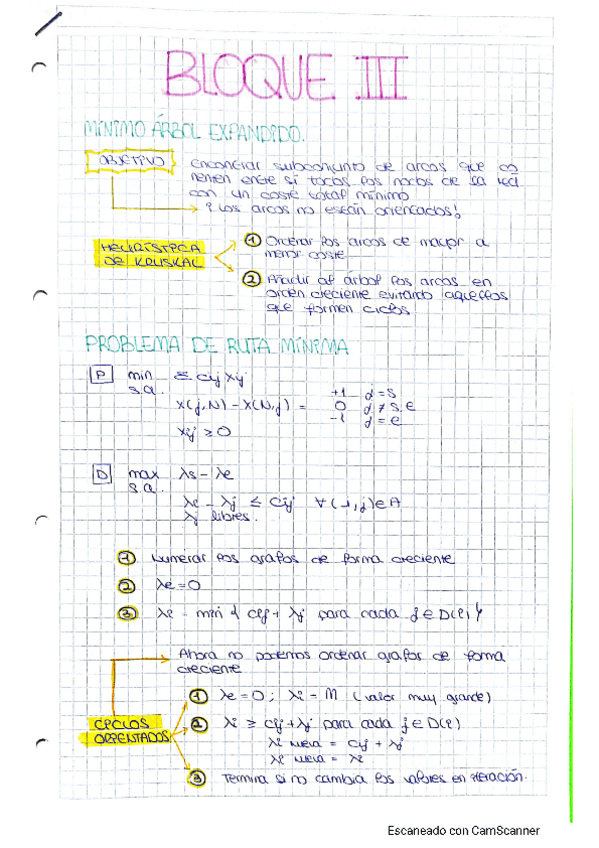 BLOQUE III
MÍNIMO ÁRBOL EXPANDIDO.
OBJETIVO
Encontrar subconjunto de arcos que co
necten entre sí todos los nodos de la red
con un coste total mínimo
¡Los arcos no están orientados!
HEURÍSTICA
DE KRUSKAL
1 Ordenar los arcos de mayor a
menor coste
2 Añadir al árbol los arcos en
orden creciente evitando aquellos
que formen ciclos
PROBLEMA DE RUTA MÍNIMA
P min Σ Cij Xij
s.a.
X(j,N) - X(N,j) = +1 j = s
0 j ≠ s,e
-1 j = e
Xij ≥ 0
D max λs - λe
s.a.
λi - λj ≤ Cij ∀(i,j) ∈ A
λj libres.
1 Numerar los grafos de forma creciente
2 λe = 0
3 λi = min { Cij + λj para cada j ∈ D(i) }
Ahora no podemos ordenar grafos de forma
creciente
CICLOS
ORIENTADOS
1 λe = 0; λi = M (valor muy grande)
2 λi ≥ Cij + λj para cada j ∈ D(i)
λi nueva = Cij + λj
λi nueva = λi
3 Termina si no cambia los valores en iteración.
Escaneado con CamScanner